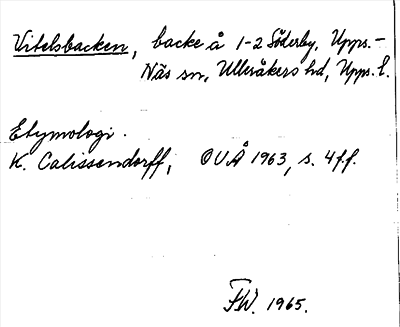 Vitelsbacken, backe å 1-2 Söderby, Upps.-
Näs sn, Ulleråkers hd, Upps. l.
Etymologi.
K. Calissendorff, OUÅ 1963, s. 4 ff.
FW. 1965.